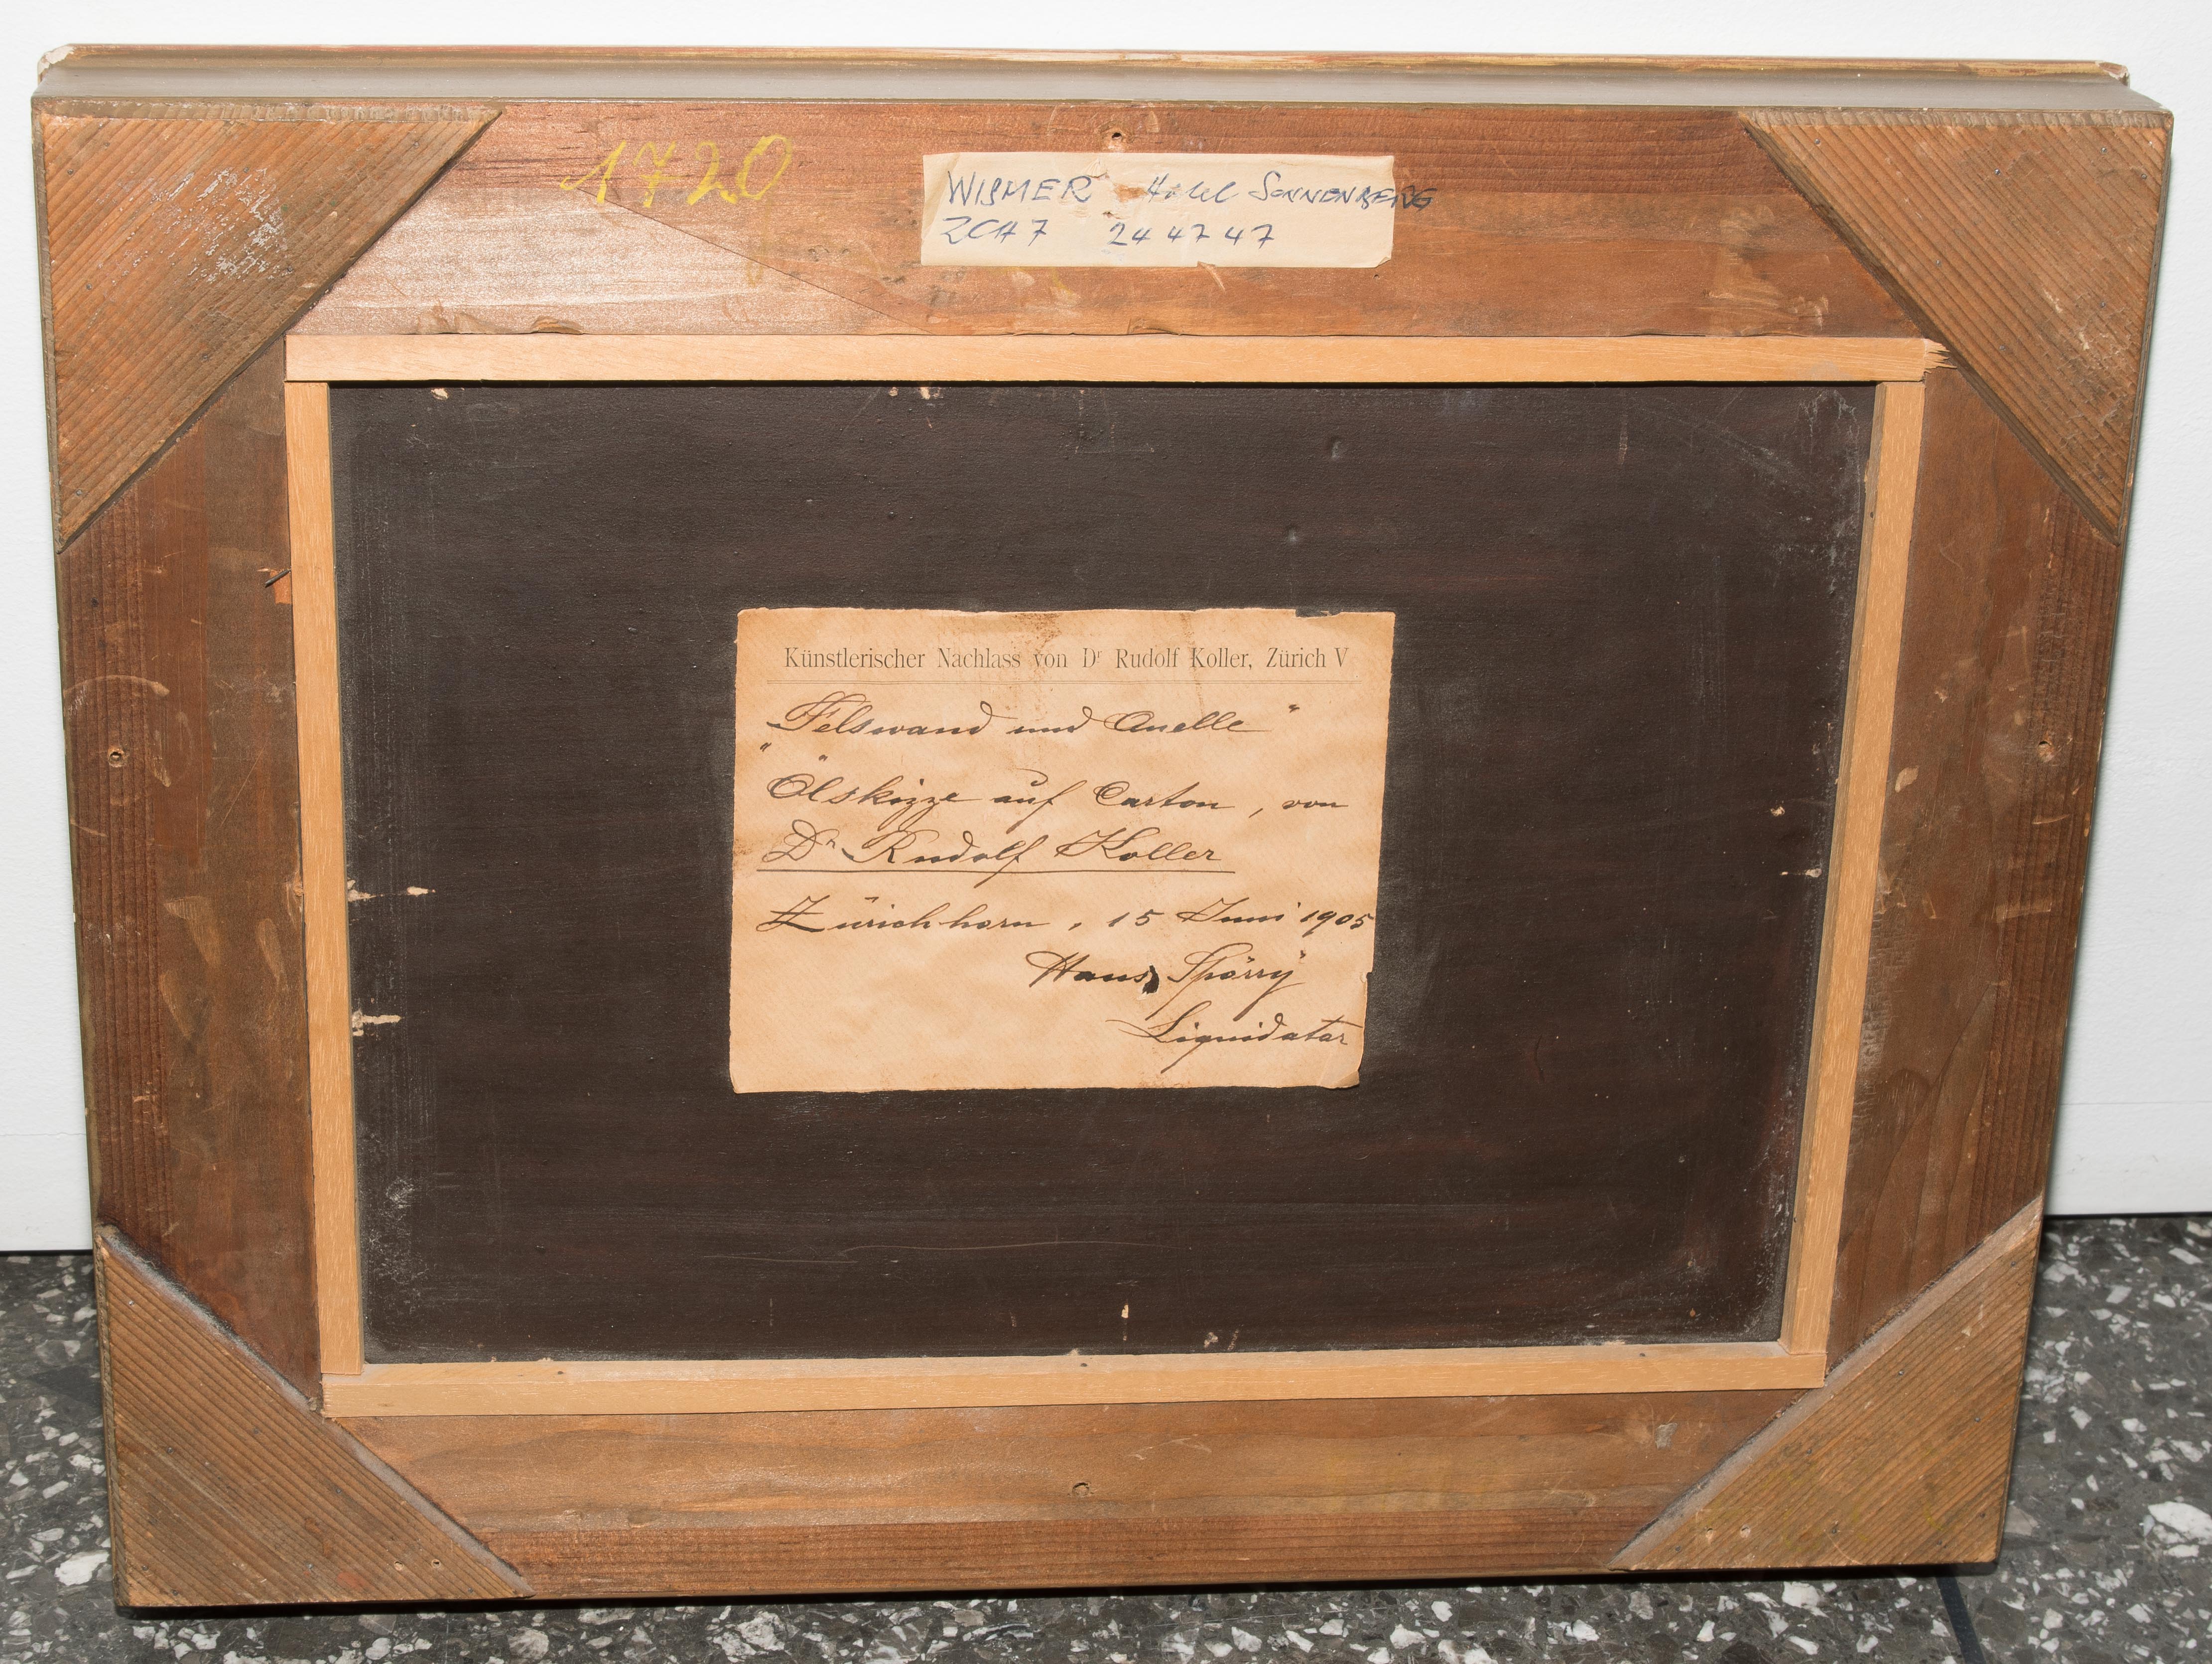 1720
WISMER Hotel SONNENBERG
ZCH 7 24 47 47
Künstlerischer Nachlass von Dr Rudolf Koller, Zürich V
„Felswand und Quelle"
Ölskizze auf Carton, von
Dr Rudolf Koller
Zürichhorn, 15 Juni 1905
Hans Spörry
Liquidator